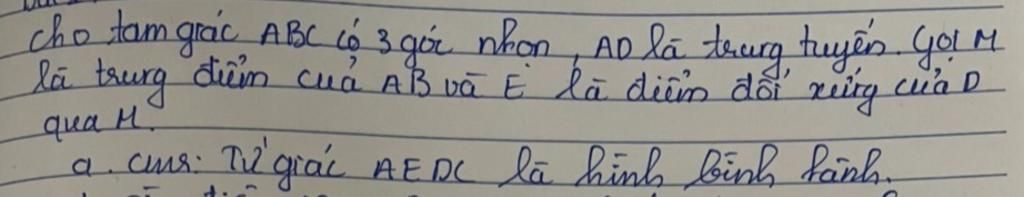 cho tam giác ABC có 3 góc nhọn, AD là trung tuyến. Gọi M
là trung điểm cuả AB và E là điểm đối xứng cuả D
qua M.
a. cms: Tứ giác AEDC là hình bình hành.